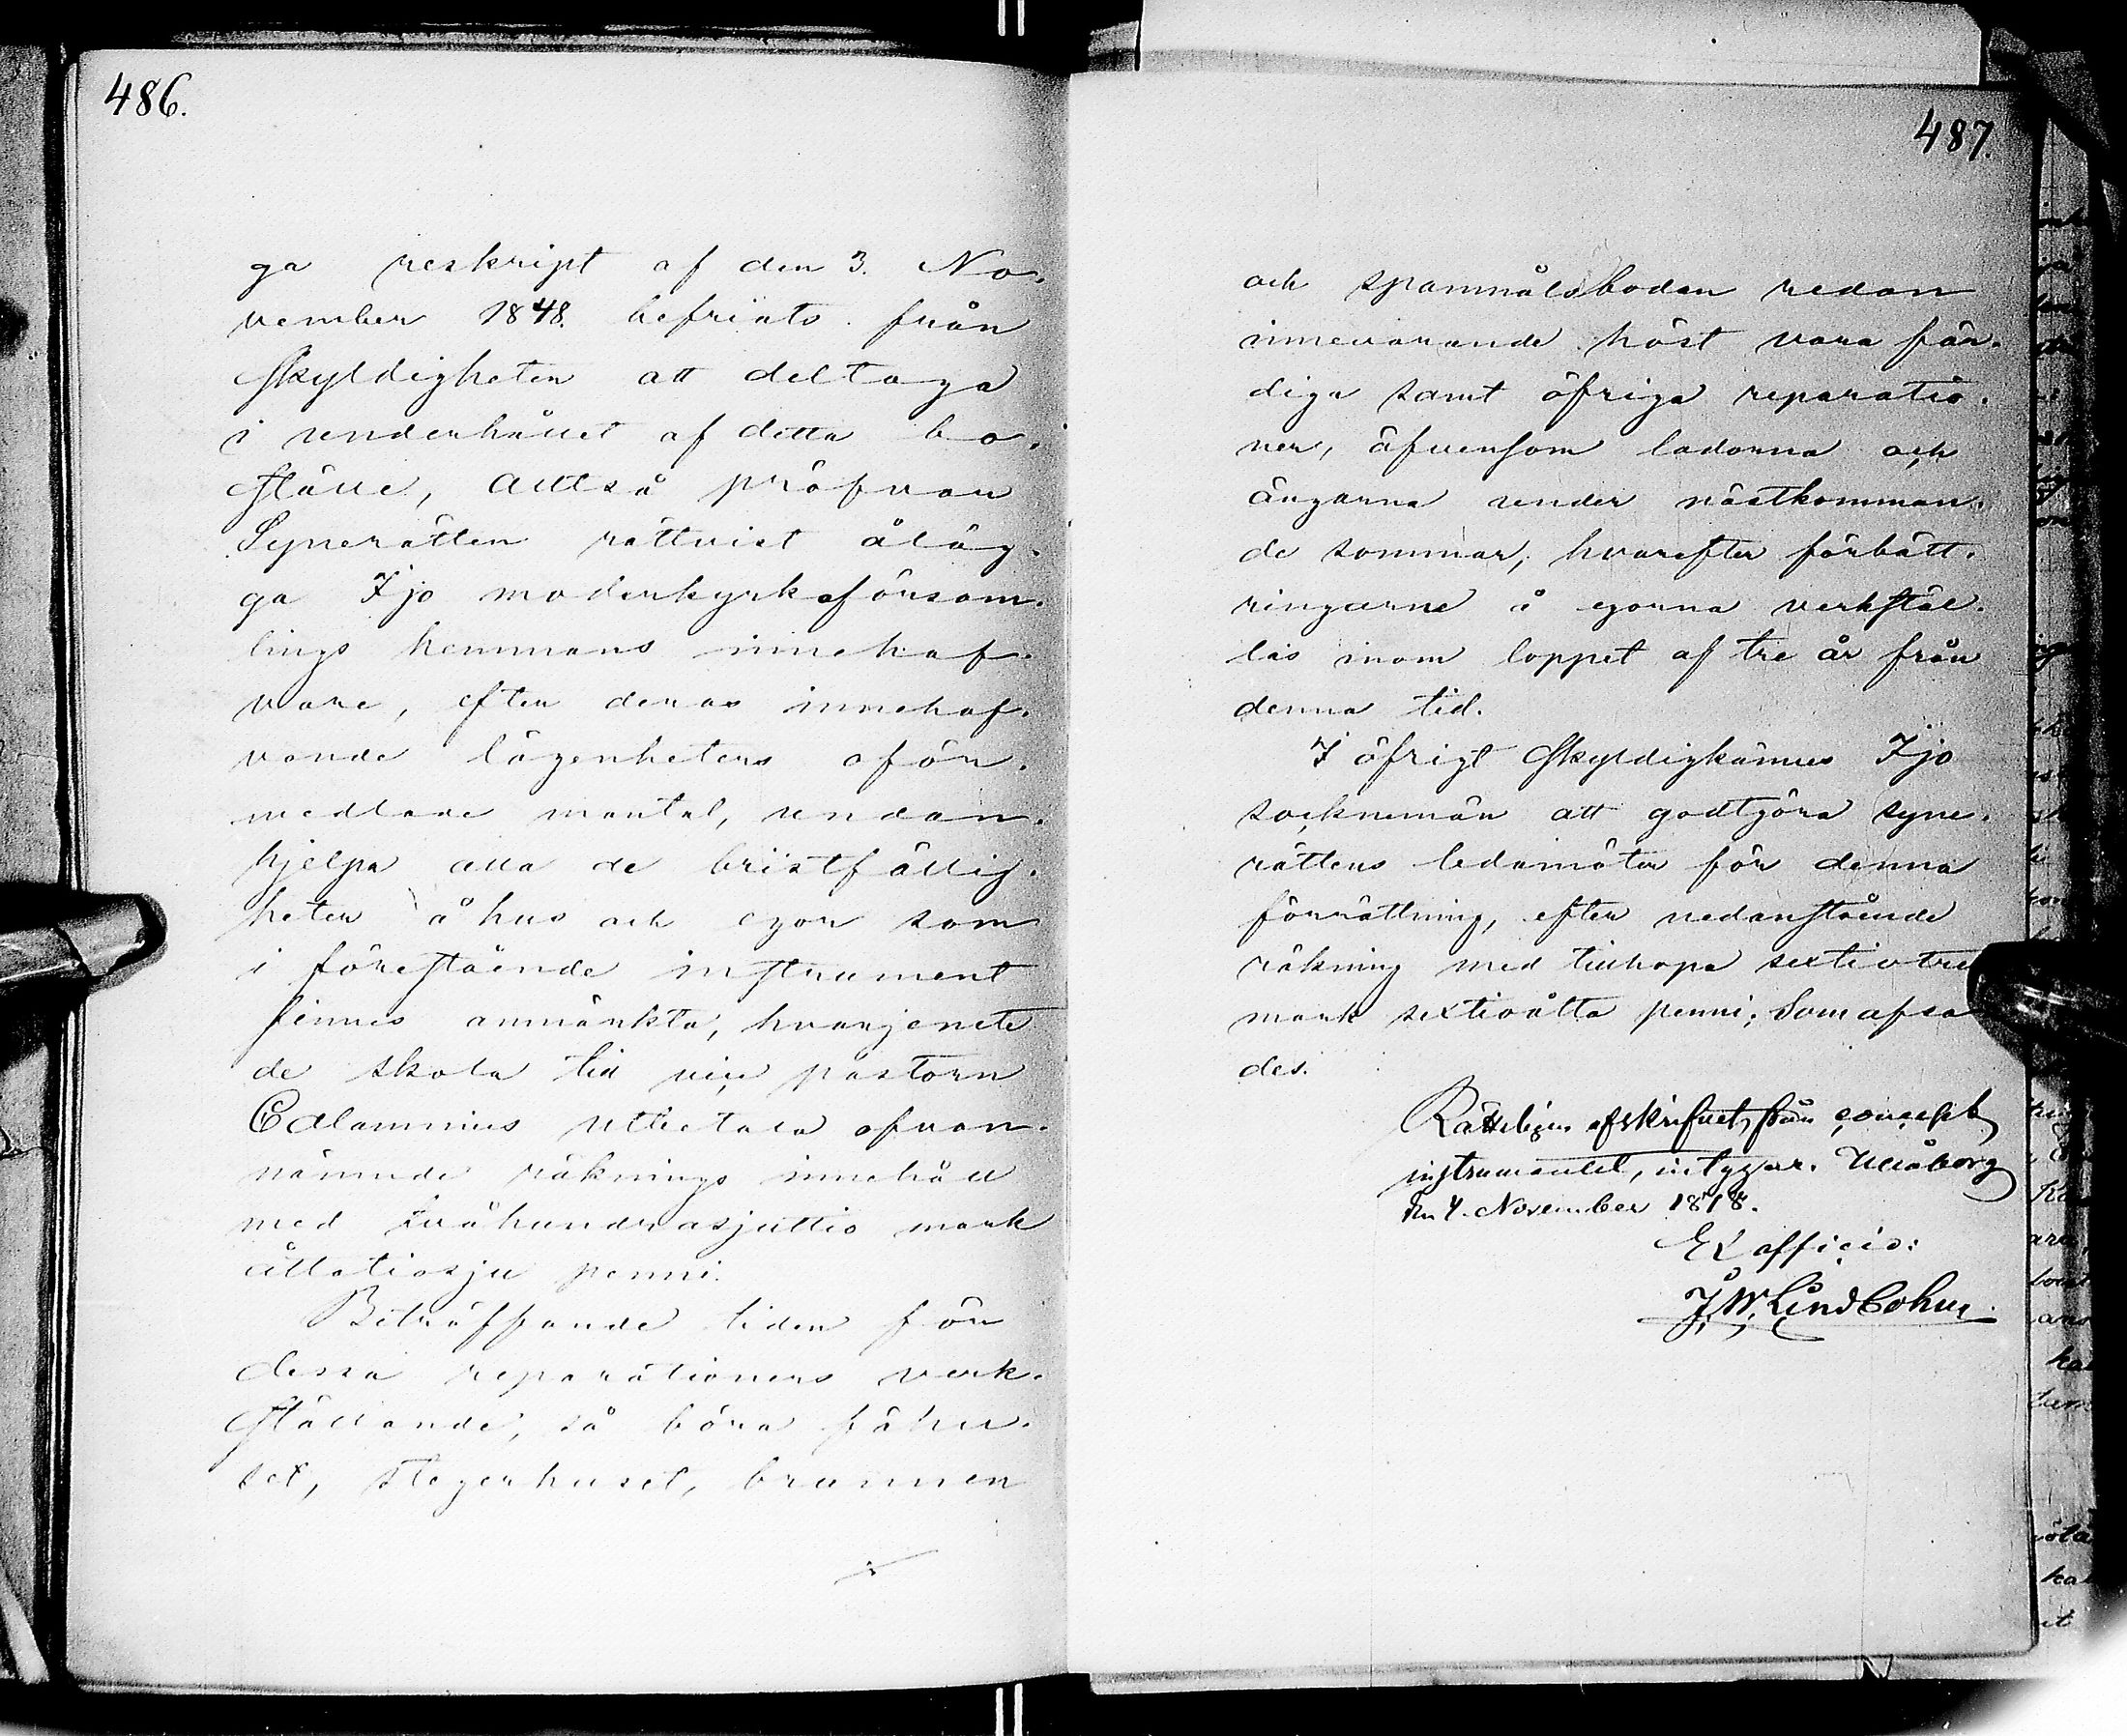 486.
ga reskript af den 3. No-
vember 1848. befriats från
skyldigheten att deltaga
i underhållet af detta bo-
ställe, Alltså pröfvar
Synerätten rättvist åläg-
ga Ijo moderkyrkoförsam-
lings hemmans innehaf-
vare, efter deras innehaf-
vande lägenheters oför-
medlade mantal, undan-
hjelpa alla de bristfällig-
heter å hus och egor som
i föreståënde instrument
finnes anmärkta, hvarjemte
de skola till vice pastorn
Calamnius utbetala ofvan-
nämnde räknings innehåll
med tvåhundrasjuttio mark
åttatiosju penni.
Beträffande tiden för
dessa reparationers verk-
ställande, så böra fähu-
set, stegerhuset, brunnen
487.
och spanmålsboden redan
innevarande höst vara fär-
diga samt öfriga reparatio-
ner, äfvensom ladorna och
ängarna under nästkomman-
de sommar, hvarefter förbätt-
ringarne å egorna verkstäl-
las inom loppet af tre år från
denna tid.
I öfrigt skyldigkännes Ijo
socknemän att godtgöra syne-
rättens ledamöter för denna
förrättning, efter nedanstående
räkning med tillhopa sextiotre
mark sextioåtta penni; Som afsa
des.
Rätteligen afskrifvet från concept
instrumentet, intygar. Uleåborg
den 4. November 1878.
Ex officio: